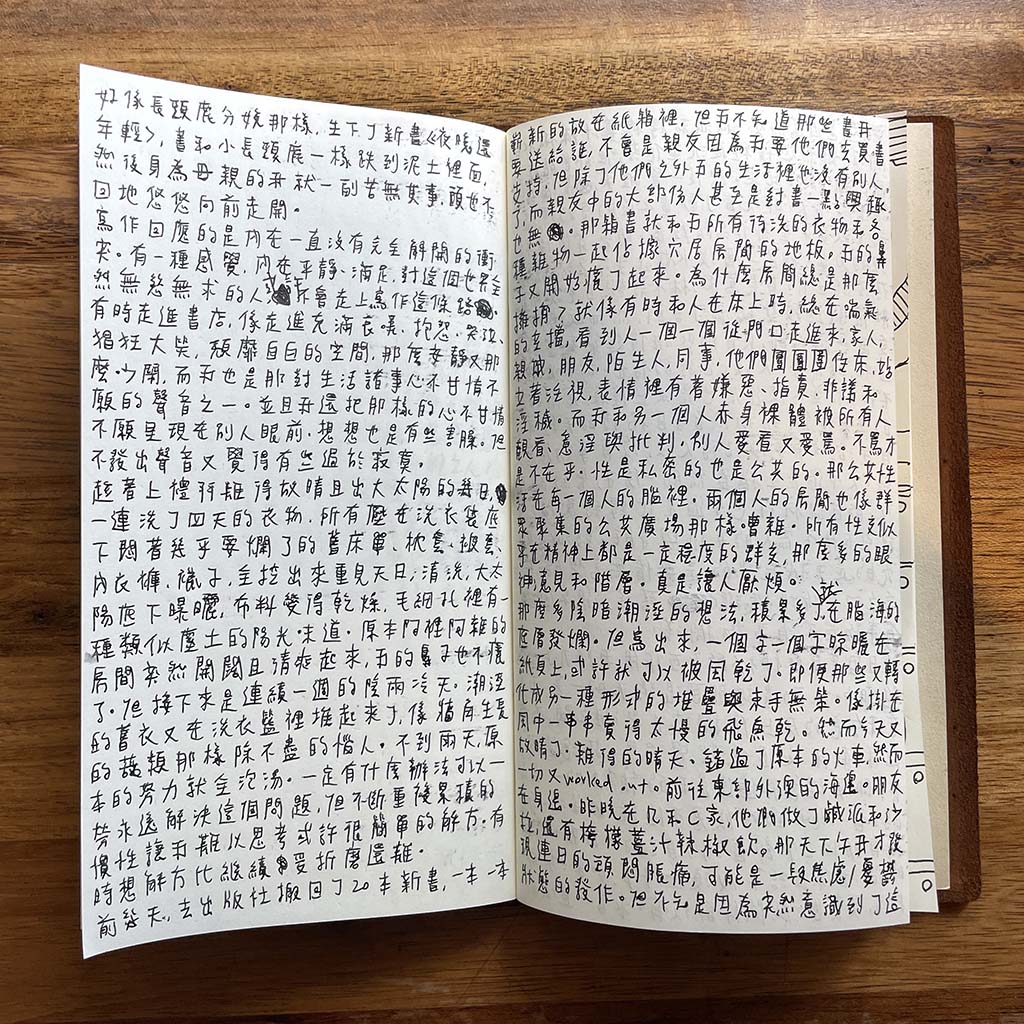 好像長頸鹿分娩那樣，生下了新書《夜晚還
年輕》，書和小長頸鹿一樣跌到泥土裡面，
然後身為母親的我就一副若無其事，頭也不
回地悠悠向前走開。
寫作回應的是內在一直沒有完全解開的衝
突。有一種感覺，內在平靜、滿足，對這個世界全
然無慾無求的人，不會走上寫作這條路。
有時走進書店，像走進充滿哀嘆、抱怨、哭泣、
猖狂大笑，頹靡自白的空間，那麼安靜又那
麼吵鬧，而我也是那對生活諸事心不甘情不
願的聲音之一。並且我還把那樣的心不甘情
不願呈現在別人眼前，想想也是有些害臊。但
不發出聲音又覺得有些過於寂寞。
趁著上禮拜難得放晴且出大太陽的幾日，
一連洗了四天的衣物，所有壓在洗衣袋底
下悶著幾乎要爛了的舊床單、枕套、被套、
內衣褲、襪子，全挖出來重見天日，清洗，大太
陽底下曝曬，布料變得乾燥，毛細孔裡有一
種類似塵土的陽光味道。原本阿裡阿雜的
房間突然開闊且清爽起來，我的鼻子也不癢
了。但接下來是連續一週的陰雨冷天，潮溼
的舊衣又在洗衣籃裡堆起來了，像牆角生長
的菇類那樣除不盡的惱人。不到兩天，原
本的努力就全泡湯。一定有什麼辦法可以一
勞永逸解決這個問題，但不斷重複累積的
慣性讓我難以思考或許很簡單的解方。有
時想解方比繼續受折磨還難。
前幾天，去出版社搬回了20本新書，一本一本
嶄新的放在紙箱裡，但我不知道那些書我
要送給誰，不會是親友因為我要他們去買書
支持，但除了他們之外我的生活裡也沒有別人
了，而親友中的大部份人甚至是對書一點興趣
也無。那箱書就和我所有待洗的衣物和各
種雜物一起佔據穴居房間的地板，我的鼻
子又開始癢了起來。為什麼房間總是那麼
擁擠？就像有時和人在床上時，總在喘氣
的空檔，看到人一個一個從門口走進來，家人，
親戚，朋友，陌生人，同事，他們團團圍住床，站
立著注視，表情裡有著嫌惡、指責、非議和
淫穢。而我和另一個人赤身裸體被所有人
觀看、意淫與批判。別人愛看又愛罵。不罵才
是不在乎。性是私密的也是公共的。那公共性
活在每一個人的腦裡。兩個人的房間也像群
眾聚集的公共廣場那樣嘈雜。所有性交似
乎在精神上都是一定程度的群交，那麼多的眼
神，意見和階層。真是讓人厭煩。
那麼多陰暗潮溼的想法，積累多了就在腦海的
底層發爛。但寫出來，一個字一個字晾曬在
紙頁上，或許就可以被風乾了。即便那些又轉
化成另一種形式的堆疊與束手無策。像掛在
風中一串串賣得太慢的飛魚乾。然而今天又
放晴了。難得的晴天。錯過了原本的火車，然而
一切又worked out。前往東部外澳的海邊。朋友
在身邊。昨晚在几米C家，他們做了鹹派和沙
拉，還有檸檬薑汁辣椒飲。那天下午我才發
現連日的頭悶脹痛，可能是一段焦慮/憂鬱
狀態的發作。但不知是因為突然意識到了這